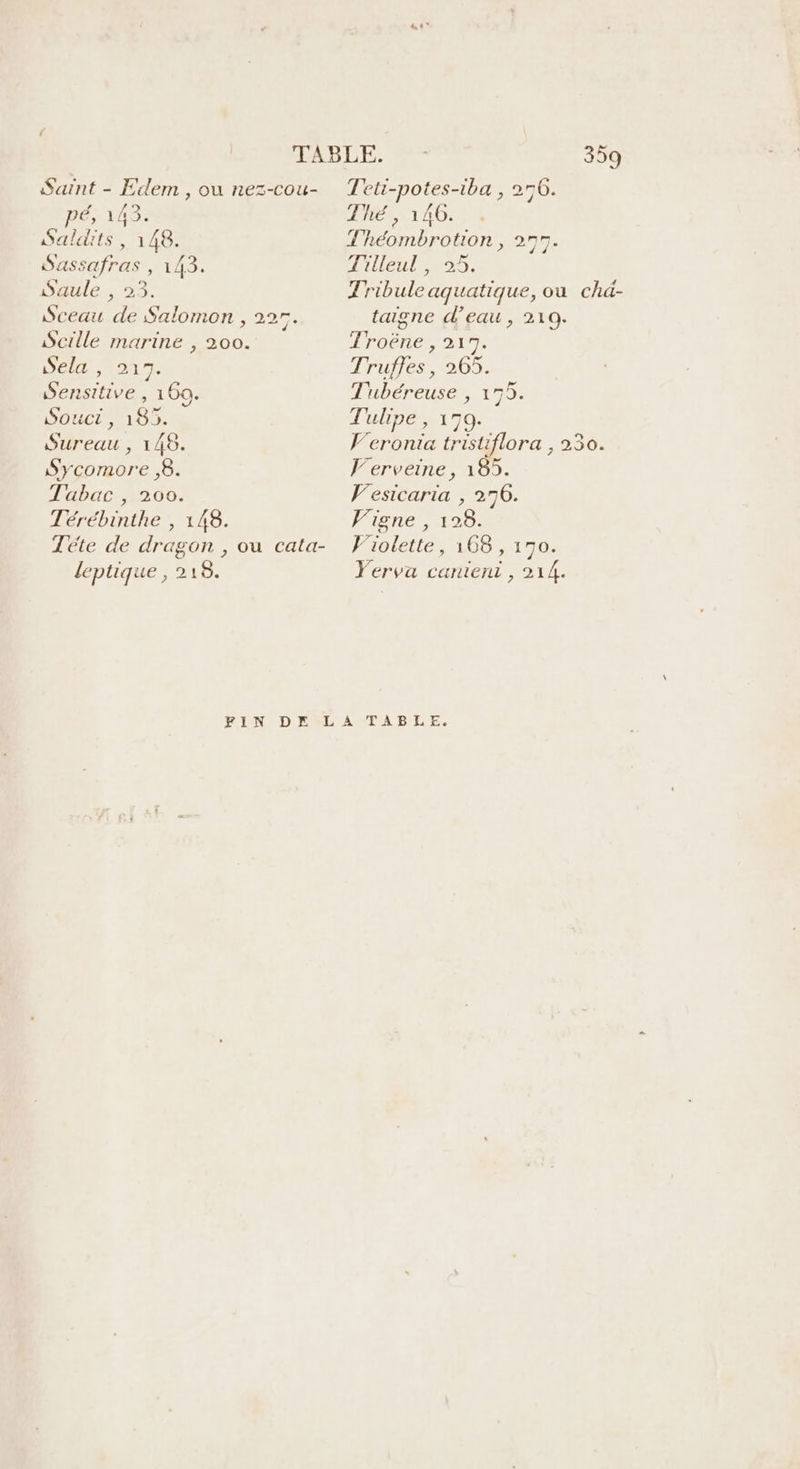 TABLE. 359
Saint - Edem , ou nez-cou-
pé, 143.
Saldits , 148.
Sassafras , 143.
Saule , 23.
Sceau de Salomon , 227.
Scille marine , 200.
Sela , 217.
Sensitive , 169.
Souci , 185.
Sureau , 148.
Sycomore ,8.
Tabac , 200.
Térébinthe , 148.
Téte de dragon , ou cata-
leptique , 218.
Teti-potes-iba , 276.
Thé , 146.
Théombrotion , 277.
Tilleul , 25.
Tribule aquatique, ou chá-
taigne d'eau , 219.
Troëne , 217.
Truffes , 265.
Tubéreuse , 175.
Tulipe , 179.
Veronia tristiflora , 230.
Verveine, 185.
Vesicaria , 276.
Vigne , 128.
Violette, 168 , 170.
Yerva canieni , 214.
FIN DE LA TABLE.